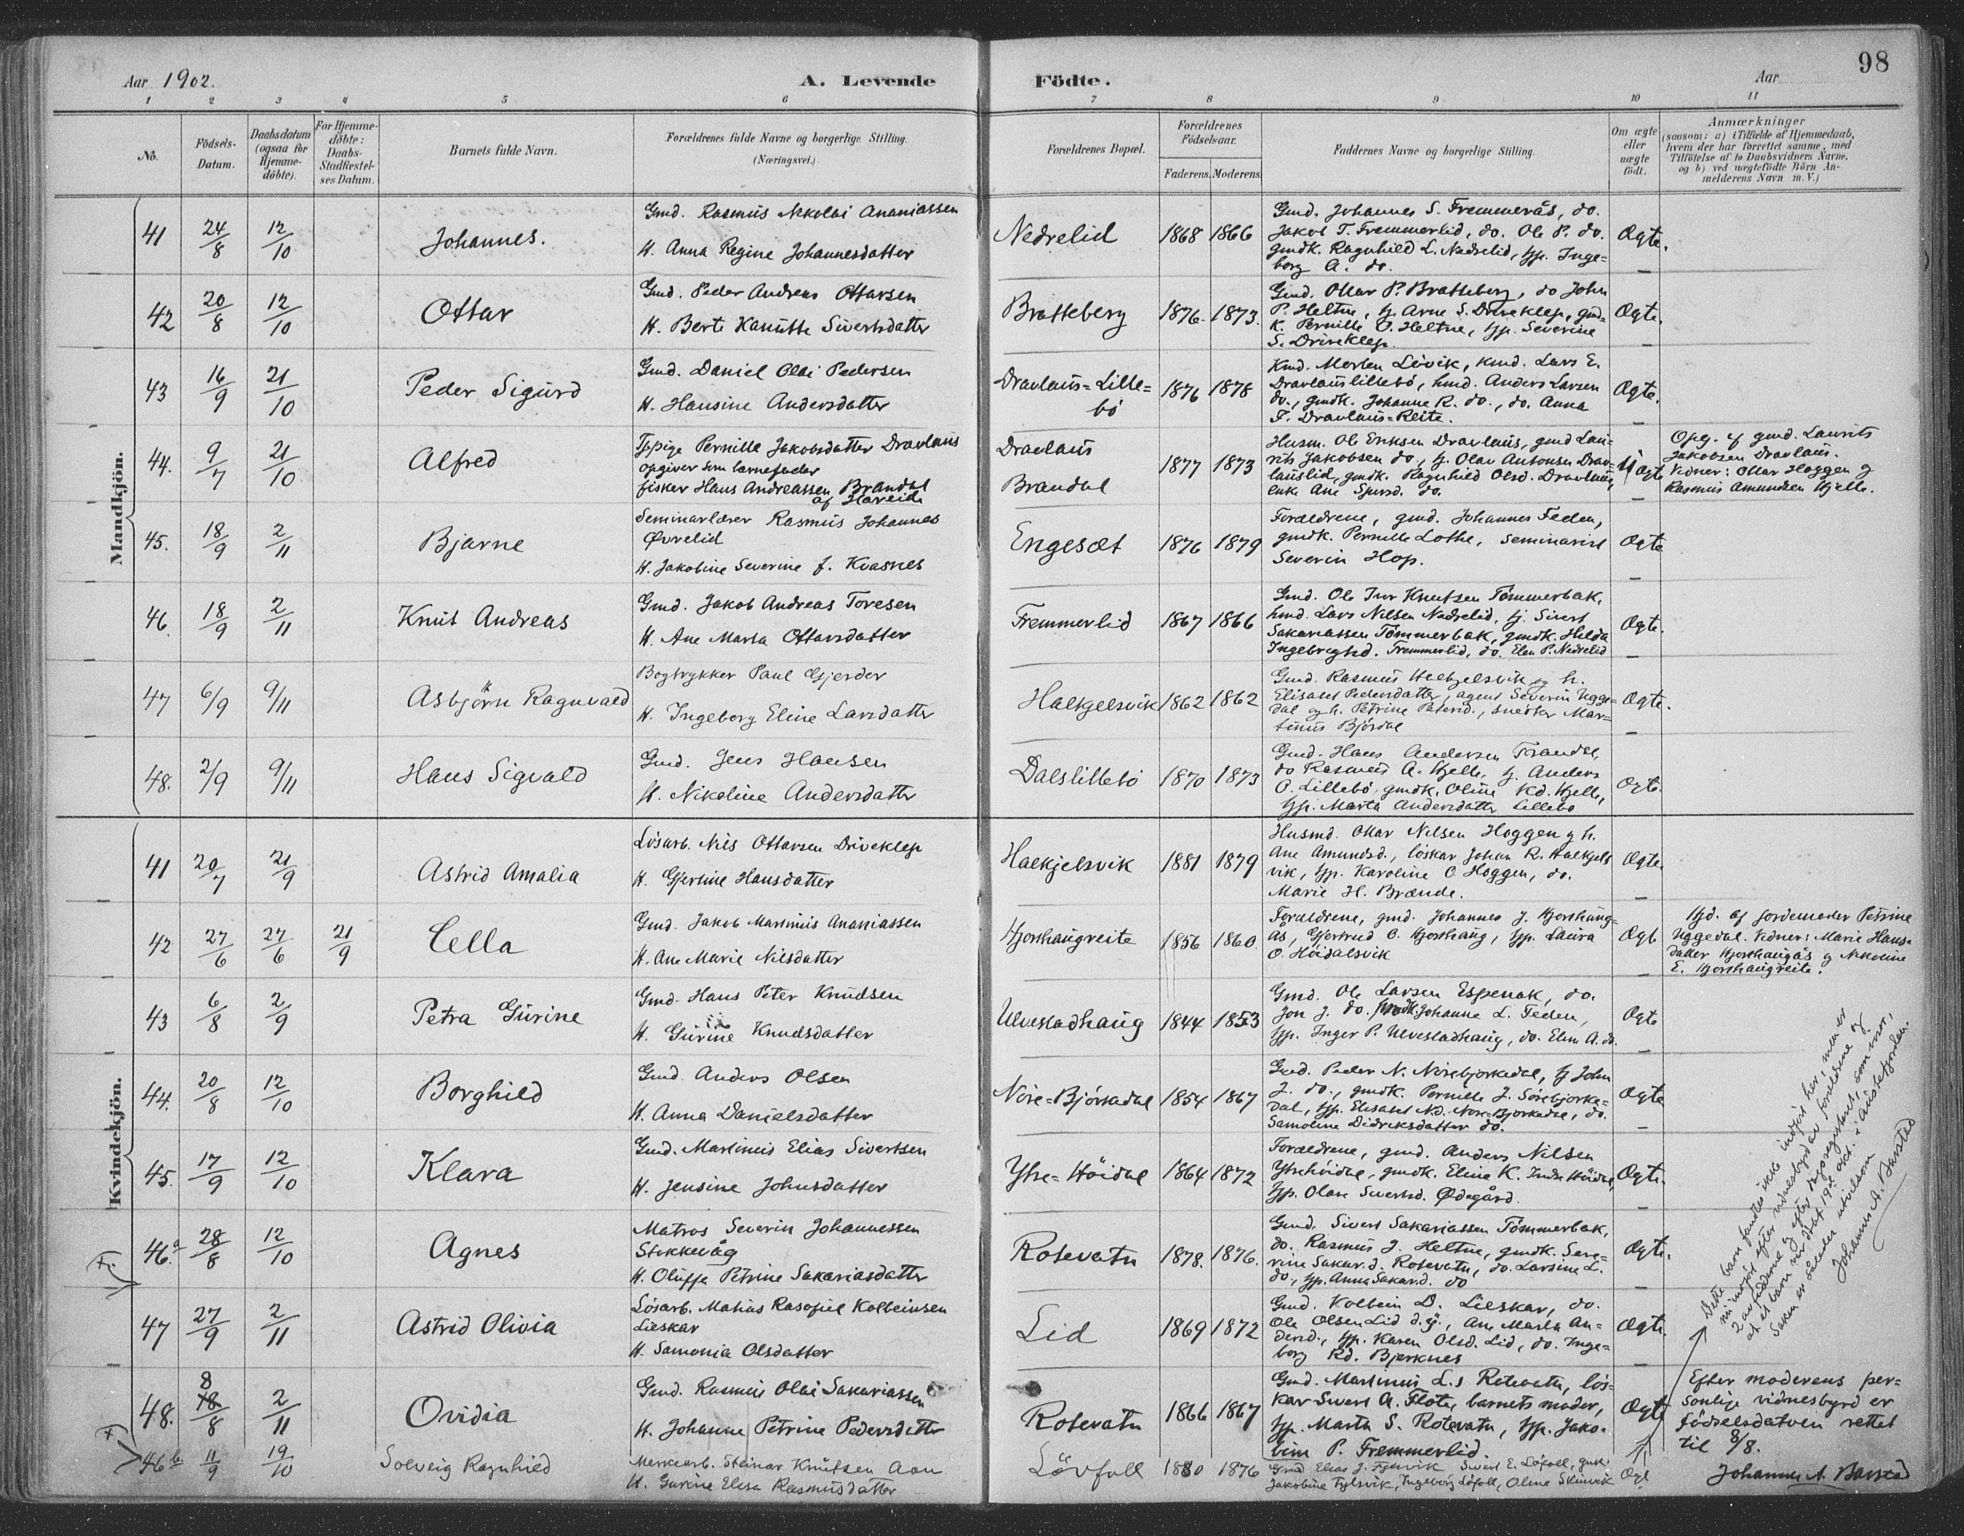 98
Aar 1902.
A. Levende Födte.
Aar
1 2 3 4 5 6 7 8 9 10 11
No.
Födsels-Datum.
Daabsdatum (ogsaa for Hjemme-döbte).
For Hjemme-döbte: Daabs-Stadfæstel-ses Datum.
Barnets fulde Navn.
Forældrenes fulde Navne og borgerlige Stilling. (Næringsvei.)
Forældrenes Bopæl.
Forældrenes Födselsaar.
Faderens. Moderens.
Faddernes Navne og borgerlige Stilling.
Om ægte eller uægte födt.
Anmærkninger
(saasom: a) i Tilfælde af Hjemmedaab, hvem der har forrettet samme, med Tilföielse af to Daabsvidners Navne, og b) ved uægtefödte Börn An-melderens Navn m. V.)
Mandkjön.
41 24/8 12/10 Johannes.
Gmd. Rasmus Nikolai Ananiassen
H. Anna Regine Johannesdatter
Nedrelid 1868 1866
Gmd. Johannes S. Fremmerås, do.
Jakob T. Fremmerlid, do. Ole P. do.
gmdk. Ragnhild L. Nedrelid, tjp. Inge=
borg A. do.
Ægte.
42 20/8 12/10 Ottar
Gmd. Peder Andreas Ottarsen
H. Berte Kanutte Sivertsdatter
Bratteberg 1876. 1873.
Gmd. Ottar P. Bratteberg, do John
P. Heltne, tj. Arne S. Driveklep, gmd=
k. Pernille O. Heltne, tjp. Severine
S. Driveklep
Ægte.
43 16/9 21/10 Peder Sigurd
Gmd. Daniel Olai Pedersen
H. Hansine Andersdatter
Dravlaus=Lille=
bö
1876 1878
Kmd. Morten Lövik, kmd. Lars E.
Dravlauslillebö, hmd. Anders Larsen
do., gmdk. Johanne R. do., do. Anna
F. Dravlaus=Reite.
Ægte.
44. 9/7 21/10 Alfred
Tjpige Pernille Jakobsdatter Dravlaus
opgiver som barnefader
fisker Hans Andreassen Brandal
af Hareid
Dravlaus
Brandal
1877 1873
Husm. Ole Eriksen Dravlaus, gmd Lau=
rits Jakobsen do., tj. Olav Antonsen Drav=
lauslid, gmdk. Ragnhild Olsd. Dravlaus,
enk. Ane Sjursd. do.
Uægte
Opg. af gmd. Laurits
Jakobsen Dravlaus.
Vidner: Ottar Hoggen og
Rasmus Amundsen Hjelle.
45. 18/9 2/11 Bjarne
Seminarlærer Rasmus Johannes
Øvrelid
H. Jakobine Severine f. Kvasnes
Engesæt 1876 1879
Forældrene, gmd. Johannes Feden,
gmdk. Pernille Lothe, seminarist
Severin Hop.
Ægte
46. 18/9 2/11 Knut Andreas
Gmd. Jakob Andreas Toresen
H. Ane Marta Ottarsdatter
Fremmerlid 1867 1866
Gmd. Ole Iver Knutsen Tömmerbak,
hmd. Lars Nilsen Nedrelid, tj. Sivert
Sakariassen Tömmerbak, gmdk. Hilda
Ingebrigtsd. Fremmerlid, do. Elen P. Nedrelid
Ægte.
47 6/9 9/11 Asbjörn Ragnvald
Bogtrykker Paul Gjerder
H. Ingeborg Eline Larsdatter
Halkjelsvik 1862 1862
Gmd. Rasmus Halkjelsvik og h.
Elisabet Pedersdatter, agent Severin Ugge=
dal og h. Petrine Petersd., snedker Mar=
tinus Björdal
Ægte.
48. 2/9 9/11 Hans Sigvald
Gmd. Jens Hansen
H. Nikoline Andersdatter
Dalslillebö 1870 1873
Gmd. Hans Andersen Frandal,
do Rasmus A. Hjelle, tj. Anders
O. Lillebö, gmdk. Oline Kd. Hjelle,
tjp. Marta Andersdatter Lillebö
Ægte.
Kvindekjön.
41 20/7 21/9 Astrid Amalia
Lösarb. Nils Ottarsen Driveklep
H. Gjertine Hansdatter
Halkjelsvik 1881 1879
Husmd. Ottar Nilsen Hoggen og h.
Ane Amundsd., löskar Johan R. Halkjels
vik, tjp. Karoline O Hoggen, do.
Marie H. Brænde.
Ægte.
42 27/6 27/6 21/9 Cella
Gmd. Jakob Martinus Ananiassen
H. Ane Marie Nilsdatter
Hjorthaugreite 1856 1860.
Forældrene, gmd. Johannes J. Hjorthaug=
ås, Gjertrud O. Hjorthaug, tjp. Laura
O. Höidalsvik
Ægt
Hjd. af jordemoder Petrine
Uggedal. Vidner: Marie Hans=
datter Hjorthaugås og Nikoline
E. Hjorthaugreite.
43 6/8 2/9 Petra Gurine
Gmd. Hans Peter Knudsen
H. Gurine Knudsdatter
Ulvestadhaug 1844 1853
Gmd. Ole Larsen Espenak, do.
Jon J. do. gmdk. Johanne L. Feden,
tjp. Inger P. Ulvestadhaug, do. Elen A. do.
Ægte
44. 20/8 12/10 Borghild
Gmd. Anders Olsen
H. Anna Danielsdatter
Nöre=Björkedal 1854 1867
Gmd. Peder N. Nörebjörkedal, tj John
J. do., gmdk. Pernille J. Sörebjörke=
dal, tjp. Elisabet Nd. Nöre=Björkedal, do.
Samoline Didriksdatter do.
Ægte
45. 17/9 12/10 Klara
Gmd. Martinus Elias Sivertsen
H. Jensine Johnsdatter
Ytre=Höidal 1864 1872
Forældrene, gmd. Anders Nilsen
Ytrehöidal, gmdk. Eline K. Indre Höidal,
tjp. Olave Sivertsd. Ødegård.
Ægte.
46.a 28/8 12/10 Agnes
Matros Severin Johannessen
Stokkevåg
H. Oluffa Petrine Sakariasdatter
Rotevatn 1878. 1876.
Gmd. Sivert Sakariassen Tömmerbak,
do. Rasmus J. Heltne, gmdk. Seve=
rine Sakar.d. Rotevatn, do. Larsine L.
do, tjp. Anna Sakar.d. do
Ægte.
47 27/9 2/11 Astrid Olivia
Lösarb. Matias Rasofiel Kolbeinsen
Lieskar
H. Samonia Olsdatter
Lid 1869 1872
Gmd. Kolbein D. Lieskar, do.
Ole Olsen Lid d.y., Ane Marta An=
dersd., tjp. Karen Olsd. Lid, do. Inge=
borg Rd. Bjerknes
Ægte.
48. 8 18/8 2/11 Ovidia
Gmd. Rasmus Olai Sakariassen
H. Johanne Petrine Pedersdatter
Rotevatn 1866 1867
Gmd. Martinus L.s Rotevatn, lös=
kar Sivert A. Flote, barnets moder,
tjp. Marta S. Rotevatn, tjp. Jako=
bine P. Fremmerlid
Ægte
Efter moderens per=
sonlige vidnesbyrd er
födselsdatoen rettet
til 8/8.
Johannes A. Barstad
46b 11/9 19/10 Solveig Ragnhild
Merkearb. Steinar Knutsen Aam
H. Gurine Elisa Rasmusdatter
Lövfoll 1880 1876
Gmd Elias J. Fylsvik, Sivert E. Löfoll, gmk.
Jakobine Fylsvik, Ingeborg Löfoll, Oline Skinvik
Ægt
Dette barn fandtes ikke indfört her, men er
nu indfört efter vidnesbyrd av foreldrene og
2 av fadderne og efter dagsregisteret, som viser,
at et barn var döbt 19de okt. i Austefjorden.
Saken er således utvilsom
Johannes A. Barstad